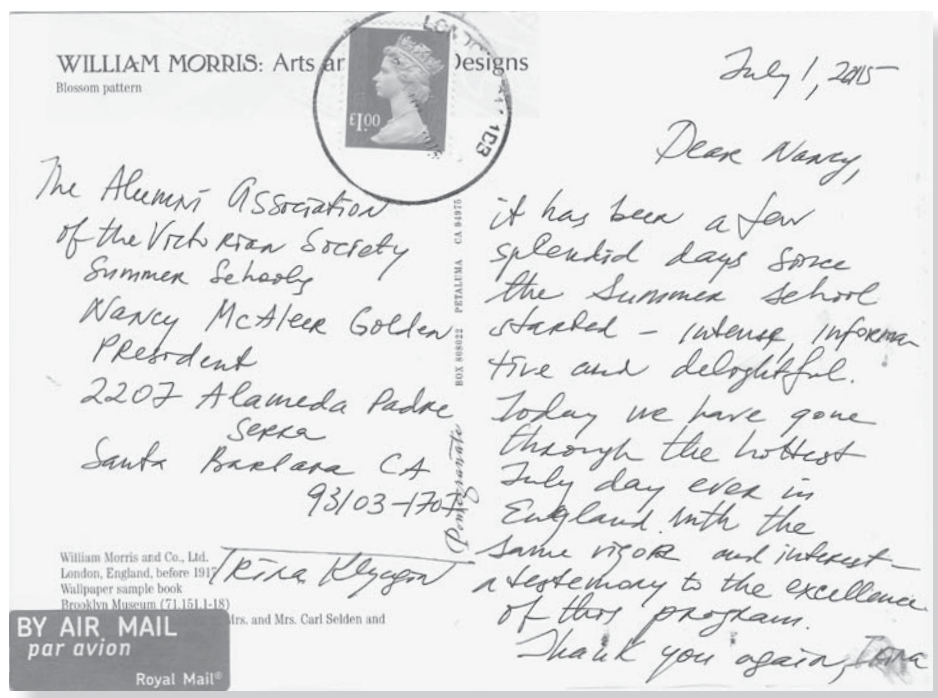 WILLIAM MORRIS: Arts an Designs
Blossom pattern
£1.00
1CB
The Alumni Association
of the Victorian Society
Summer Schools
Nancy McAleer Golden
President
2207 Alameda Padre
Serra
Santa Barbara CA
93103-1707
William Morris and Co., Ltd.
London, England, before 1917
Wallpaper sample book
Brooklyn Museum (71.151.1-18)
Mrs. and Mrs. Carl Selden and
Irina
BY AIR MAIL
par avion
Royal Mail®
BOX 808022 PETALUMA CA 94975
Pomegranate
July 1, 2015
Dear Nancy,
it has been a few
splendid days since
the Summer School
started – intense, informa
tive and delightful.
Today we have gone
through the hottest
July day ever in
England with the
same vigor and interest –
a testemony to the excellence
of this program.
Thank you again, Irina